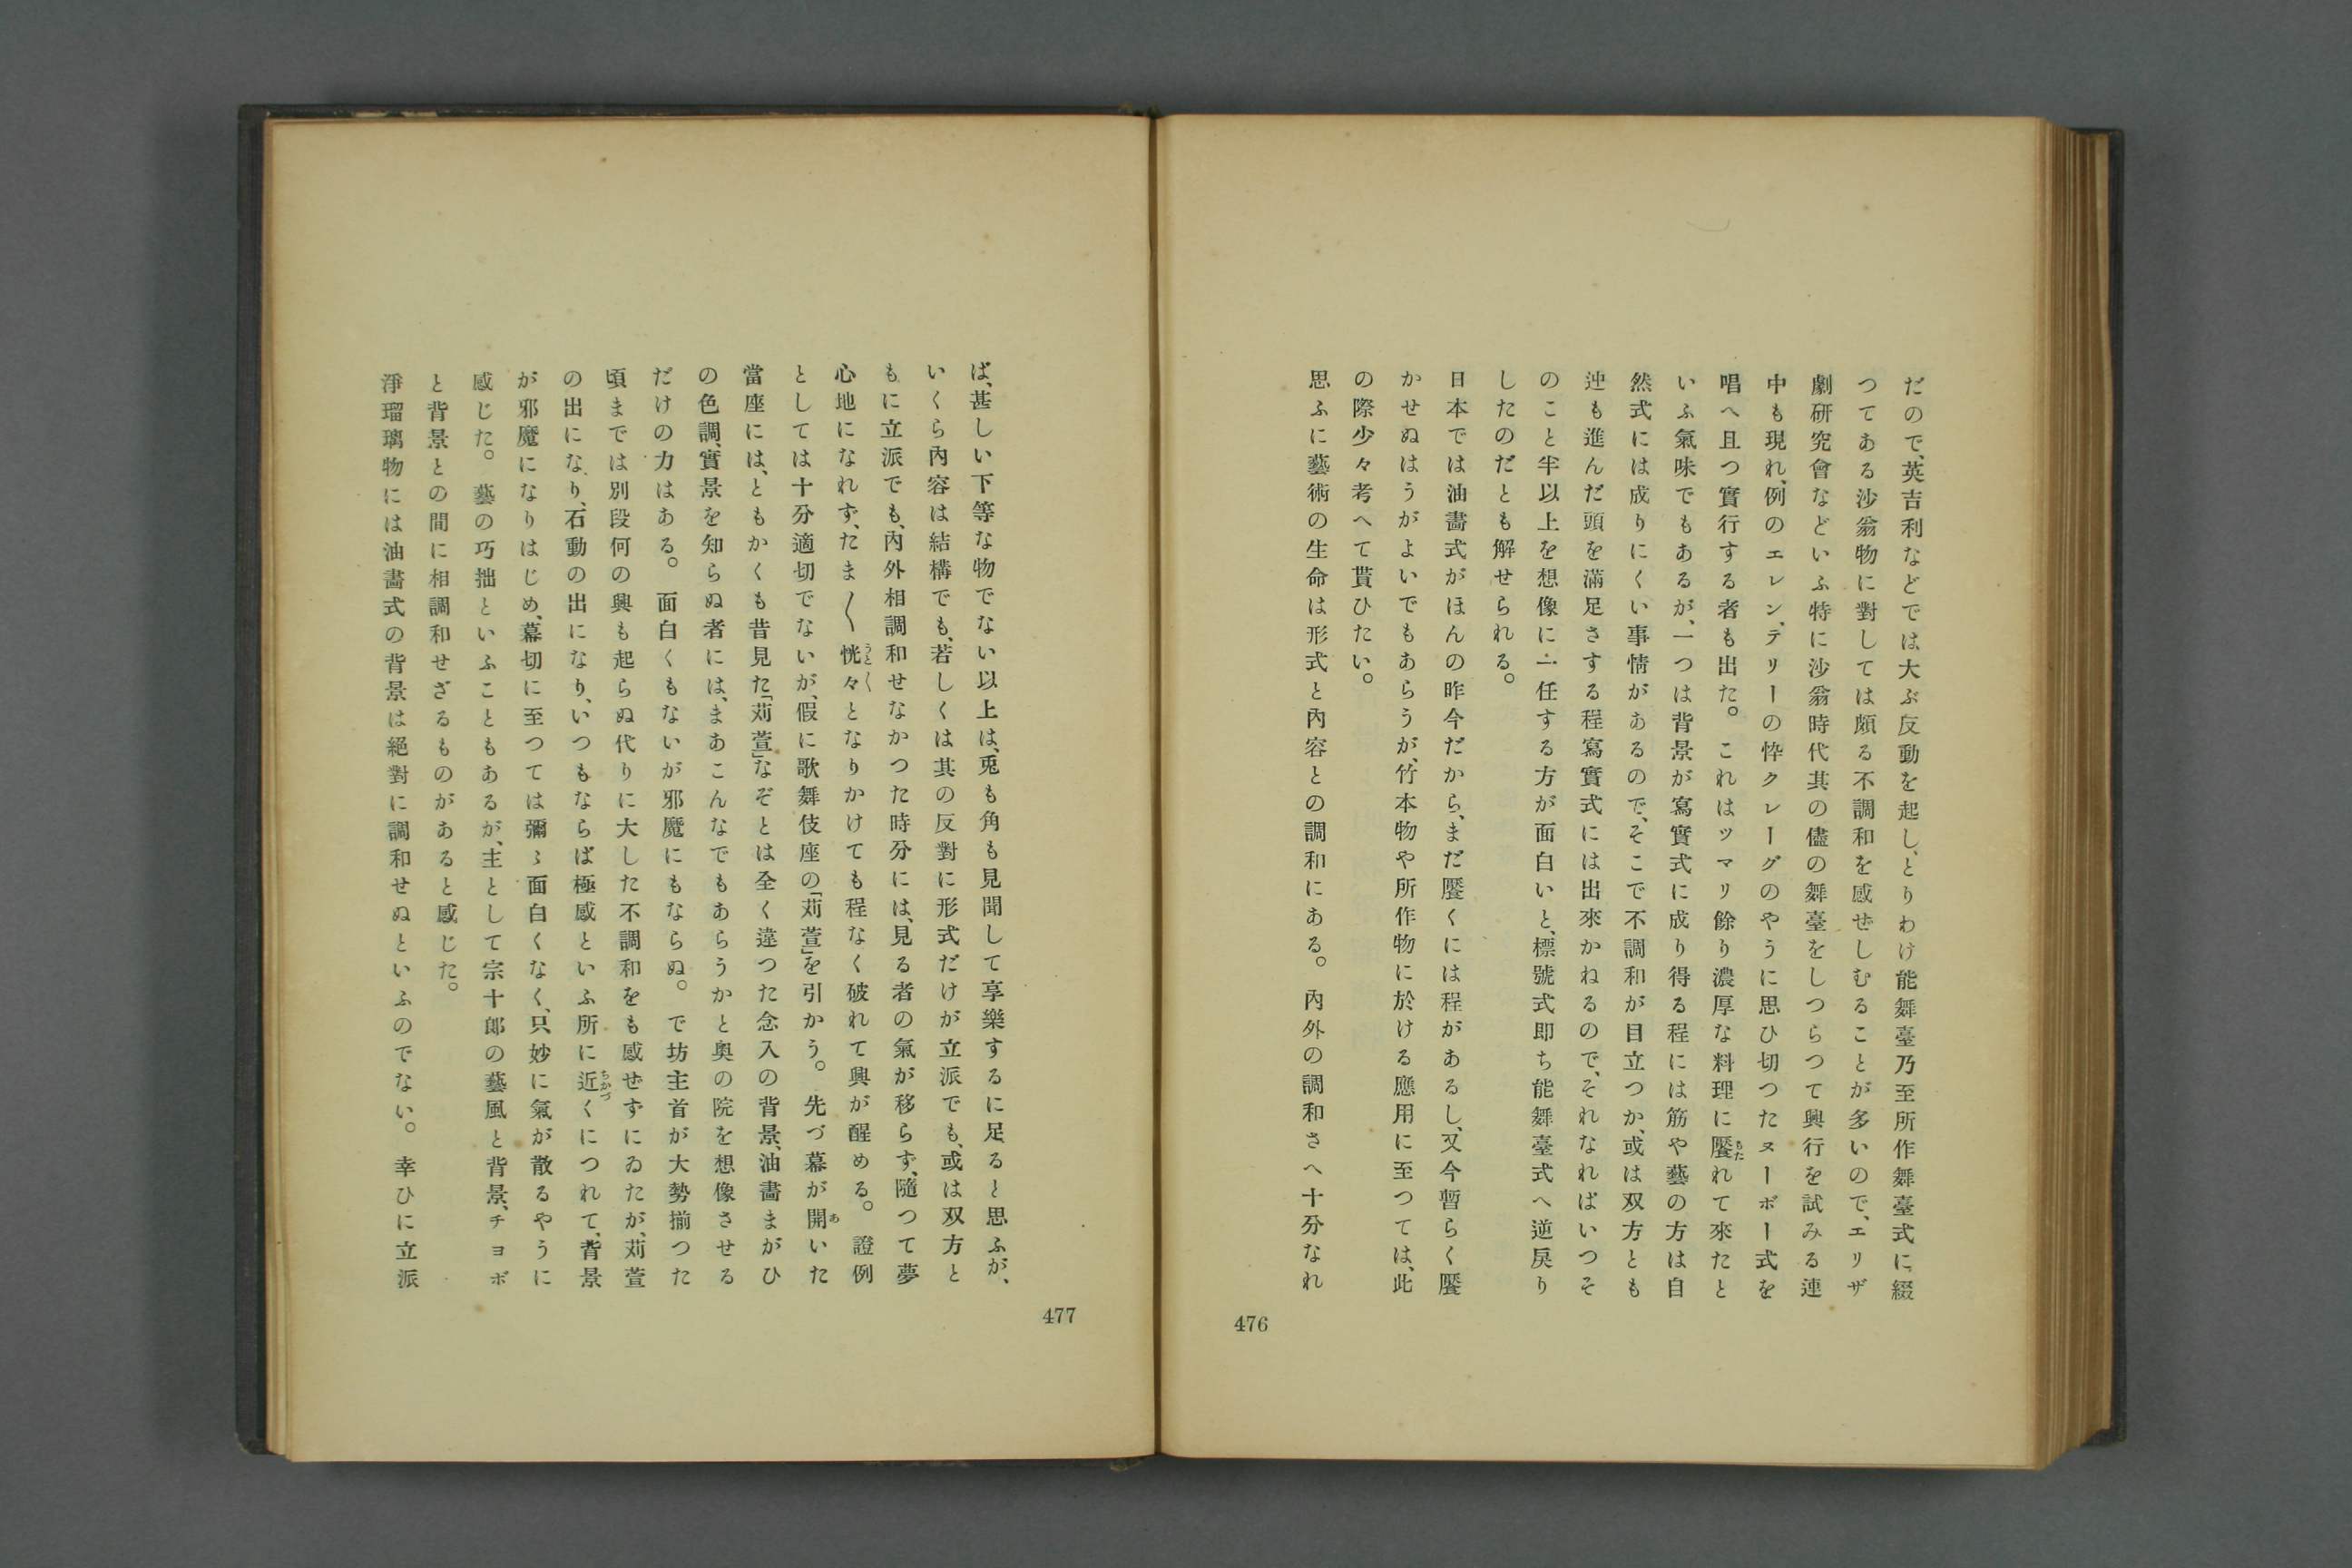 だので、英吉利などでは大ぶ反動を起し、とりわけ能舞臺乃至所作舞臺式に綴
つてある沙翁物に對しては頗る不調和を感ぜしむることが多いので、エリザ
劇研究會などいふ特に沙翁時代其の儘の舞臺をしつらつて興行を試みる連
中も現れ、例のエレン、テリーの忰クレーグのやうに思ひ切つたヌーボー式を
唱へ且つ實行する者も出た。これはツマリ餘り濃厚な料理に饜れて來たと
いふ氣味でもあるが、一つは背景が寫實式に成り得る程には筋や藝の方は自
然式には成りにくい事情があるので、そこで不調和が目立つか、或は双方とも
迚も進んだ頭を滿足さする程寫實式には出來かねるので、それなればいつそ
のこと半以上を想像に一任する方が面白いと、標號式即ち能舞臺式へ逆戻り
したのだとも解せられる。
日本では油畵式がほんの昨今だから、まだ饜くには程があるし、又今暫らく饜
かせぬはうがよいでもあらうが、竹本物や所作物に於ける應用に至つては、此
の際少々考へて貰ひたい。
思ふに藝術の生命は形式と內容との調和にある。內外の調和さへ十分なれ
476
ば、甚しい下等な物でない以上は、兎も角も見聞して享樂するに足ると思ふが、
いくら內容は結構でも、若しくは其の反對に形式だけが立派でも、或は双方と
もに立派でも、內外相調和せなかつた時分には、見る者の氣が移らず、隨つて夢
心地になれず、たま〱恍々となりかけても程なく破れて興が醒める。證例
としては十分適切でないが、假に歌舞伎座の「苅萱」を引かう。先づ幕が開いた
當座には、ともかくも昔見た「苅萱」なぞとは全く違つた念入の背景、油畵まがひ
の色調、實景を知らぬ者には、まあこんなでもあらうかと奧の院を想像させる
だけの力はある。面白くもないが邪魔にもならぬ。で坊主首が大勢揃つた
頃までは別段何の興も起らぬ代りに大した不調和をも感ぜずにゐたが、苅萱
の出になり、石動の出になり、いつもならば極感といふ所に近くにつれて、背景
が邪魔になりはじめ、幕切に至つては彌〻面白くなく、只妙に氣が散るやうに
感じた。藝の巧拙といふこともあるが、主として宗十郞の藝風と背景、チョボ
と背景との間に相調和せざるものがあると感じた。
淨瑠璃物には油畵式の背景は絕對に調和せぬといふのでない。幸ひに立派
477